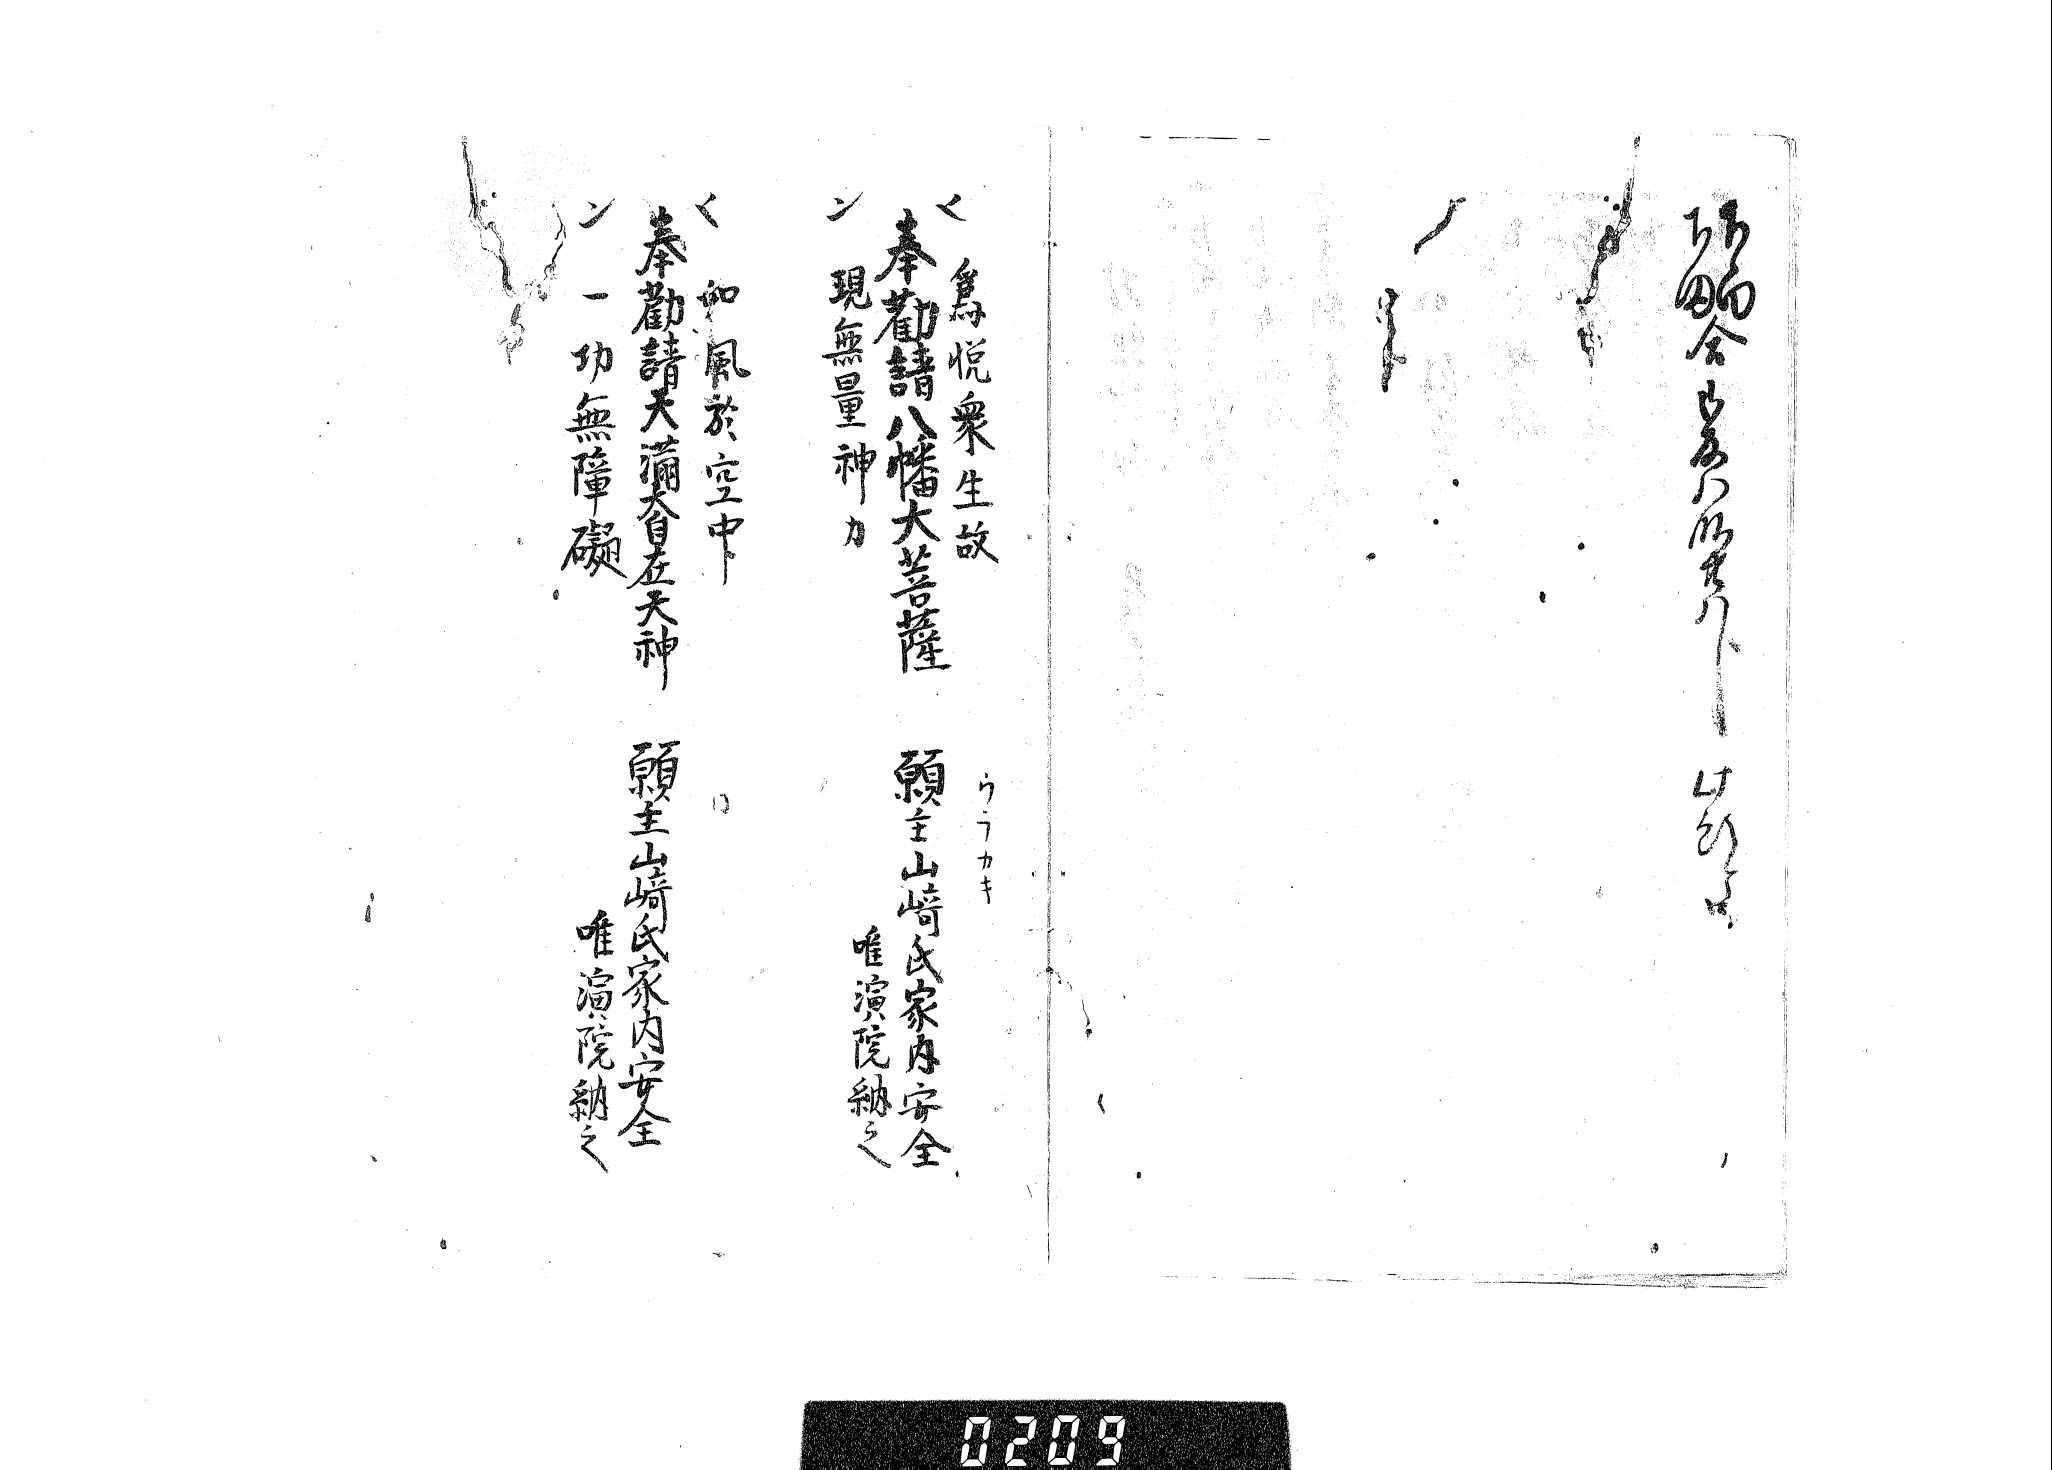 爲悦衆生故
奉勸請八幡大菩薩
現無量神力
ウラカキ
願主山﨑氏家内安全
唯演院納之
如風於空中
奉勸請天満大自在天神
一切無障礙
願主山﨑氏家内安全
唯演院納之
0209